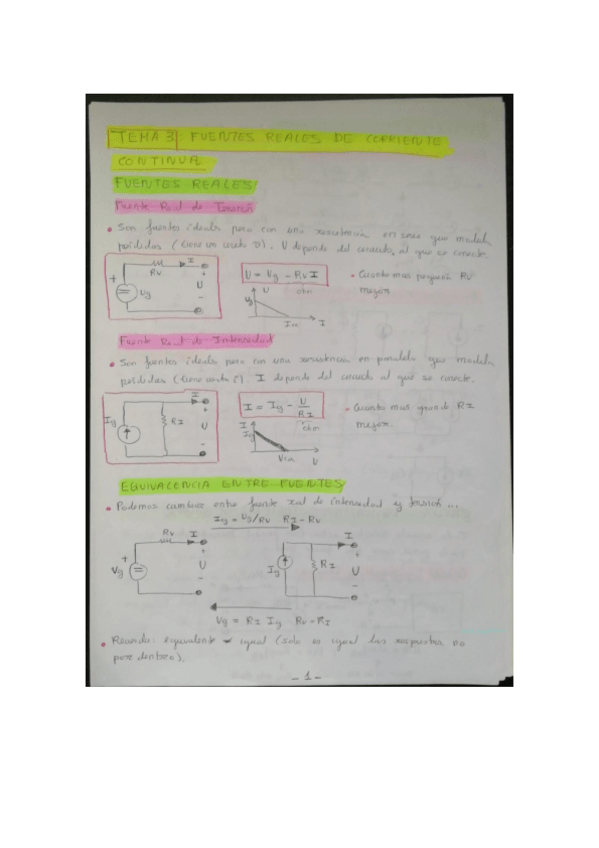 TEMA 3: FUENTES REALES DE CORRIENTE
CONTINUA
FUENTES REALES
Fuente Real de Tensión
• Son fuentes ideales pero con una resistencia en serie que modela
pérdidas (tiene un cierto V). U depende del circuito al que se conecte.
Rv I + Ug U -
U = Vg - Rv I
ohm
U Vg Icc I
• Cuanto mas pequeña Rv
mejor.
Fuente Real de Intensidad
• Son fuentes ideales pero con una resistencia en paralelo que modela
pérdidas (tiene cierta i). I depende del circuito al que se conecte.
Ig RI I + U -
I = Ig - U/RI
ohm
I Ig U
• Cuanto mas grande RI
mejor.
EQUIVALENCIA ENTRE FUENTES
• Podemos cambiar entre fuente real de intensidad y tensión...
Ig = Vg/Rv RI = Rv
Rv I + Vg U -
Ig RI I + U -
Vg = RI Ig Rv = RI
• Recuerda: equivalente ≠ igual (solo es igual las respuestas no
por dentro).
- 1 -